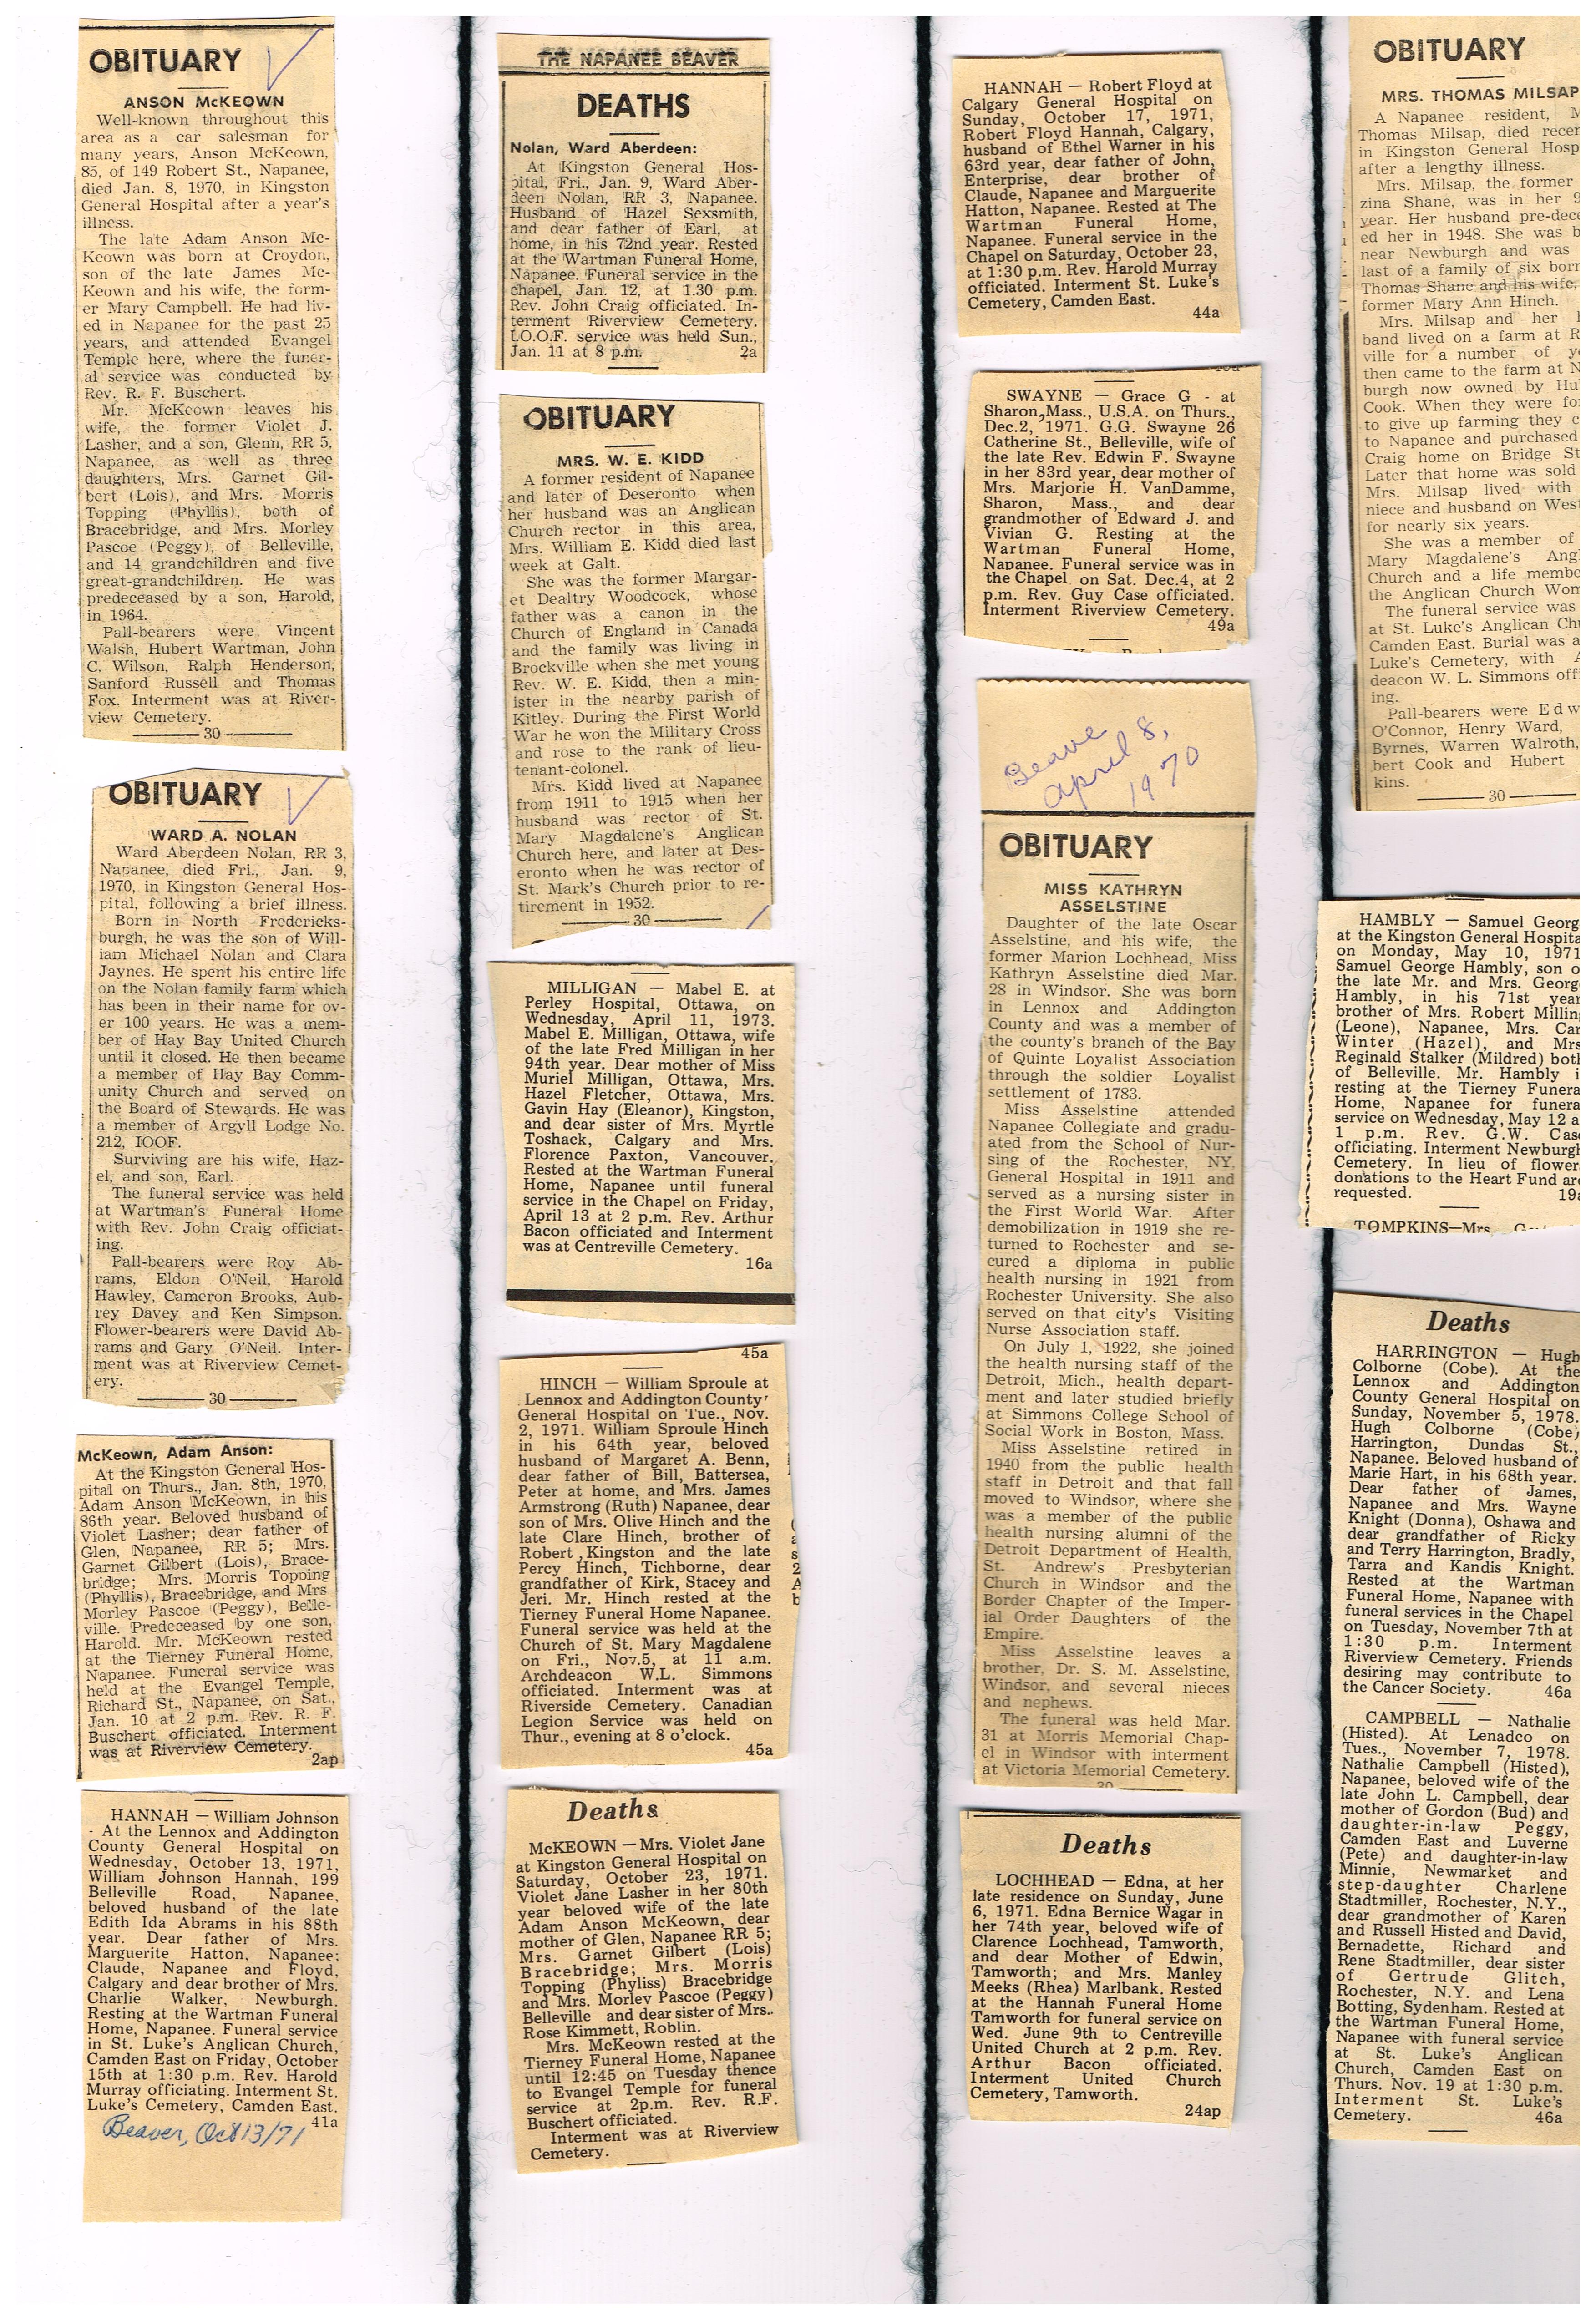 OBITUARY
ANSON McKEOWN
Well-known throughout this
area as a car salesman for
many years, Anson McKeown,
85, of 149 Robert St., Napanee,
died Jan. 8, 1970, in Kingston
General Hospital after a year's
illness.
The late Adam Anson Mc-
Keown was born at Croydon,
son of the late James Mc-
Keown and his wife, the form-
er Mary Campbell. He had liv-
ed in Napanee for the past 25
years, and attended Evangel
Temple here, where the funer-
al service was conducted by
Rev. R. F. Buschert.
Mr. McKeown leaves his
wife, the former Violet J.
Lasher, and a son, Glenn, RR 5,
Napanee, as well as three
daughters, Mrs. Garnet Gil-
bert (Lois), and Mrs. Morris
Topping (Phyllis), both of
Bracebridge, and Mrs. Morley
Pascoe (Peggy), of Belleville,
and 14 grandchildren and five
great-grandchildren. He was
predeceased by a son, Harold,
in 1964.
Pall-bearers were Vincent
Walsh, Hubert Wartman, John
C. Wilson, Ralph Henderson,
Sanford Russell and Thomas
Fox. Interment was at River-
view Cemetery.
30
OBITUARY
WARD A. NOLAN
Ward Aberdeen Nolan, RR 3,
Napanee, died Fri., Jan. 9,
1970, in Kingston General Hos-
pital, following a brief illness.
Born in North Fredericks-
burgh, he was the son of Will-
iam Michael Nolan and Clara
Jaynes. He spent his entire life
on the Nolan family farm which
has been in their name for ov-
er 100 years. He was a mem-
ber of Hay Bay United Church
until it closed. He then became
a member of Hay Bay Comm-
unity Church and served on
the Board of Stewards. He was
a member of Argyll Lodge No.
212, IOOF.
Surviving are his wife, Haz-
el, and son, Earl.
The funeral service was held
at Wartman's Funeral Home
with Rev. John Craig officiat-
ing.
Pall-bearers were Roy Ab-
rams, Eldon O'Neil, Harold
Hawley, Cameron Brooks, Aub-
rey Davey and Ken Simpson.
Flower-bearers were David Ab-
rams and Gary O'Neil. Inter-
ment was at Riverview Cemet-
ery.
30
McKeown, Adam Anson:
At the Kingston General Hos-
pital on Thurs., Jan. 8th, 1970,
Adam Anson McKeown, in his
86th year. Beloved husband of
Violet Lasher; dear father of
Glen, Napanee, RR 5; Mrs.
Garnet Gilbert (Lois), Brace-
bridge; Mrs. Morris Topping
(Phyllis), Bracebridge, and Mrs
Morley Pascoe (Peggy), Belle-
ville. Predeceased by one son,
Harold. Mr. McKeown rested
at the Tierney Funeral Home,
Napanee. Funeral service was
held at the Evangel Temple,
Richard St., Napanee, on Sat.,
Jan. 10 at 2 p.m. Rev. R. F.
Buschert officiated. Interment
was at Riverview Cemetery.
2ap
HANNAH — William Johnson
- At the Lennox and Addington
County General Hospital on
Wednesday, October 13, 1971,
William Johnson Hannah, 199
Belleville Road, Napanee,
beloved husband of the late
Edith Ida Abrams in his 88th
year. Dear father of Mrs.
Marguerite Hatton, Napanee;
Claude, Napanee and Floyd,
Calgary and dear brother of Mrs.
Charlie Walker, Newburgh.
Resting at the Wartman Funeral
Home, Napanee. Funeral service
in St. Luke's Anglican Church,
Camden East on Friday, October
15th at 1:30 p.m. Rev. Harold
Murray officiating. Interment St.
Luke's Cemetery, Camden East.
41a
Beaver, Oct 13/71
THE NAPANEE BEAVER
DEATHS
Nolan, Ward Aberdeen:
At Kingston General Hos-
pital, Fri., Jan. 9, Ward Aber-
deen Nolan, RR 3, Napanee.
Husband of Hazel Sexsmith,
and dear father of Earl, at
home, in his 72nd year. Rested
at the Wartman Funeral Home,
Napanee. Funeral service in the
chapel, Jan. 12, at 1.30 p.m.
Rev. John Craig officiated. In-
terment Riverview Cemetery.
I.O.O.F. service was held Sun.,
Jan. 11 at 8 p.m. 2a
OBITUARY
MRS. W. E. KIDD
A former resident of Napanee
and later of Deseronto when
her husband was an Anglican
Church rector in this area,
Mrs. William E. Kidd died last
week at Galt.
She was the former Margar-
et Dealtry Woodcock, whose
father was a canon in the
Church of England in Canada
and the family was living in
Brockville when she met young
Rev. W. E. Kidd, then a min-
ister in the nearby parish of
Kitley. During the First World
War he won the Military Cross
and rose to the rank of lieu-
tenant-colonel.
Mrs. Kidd lived at Napanee
from 1911 to 1915 when her
husband was rector of St.
Mary Magdalene's Anglican
Church here, and later at Des-
eronto when he was rector of
St. Mark's Church prior to re-
tirement in 1952.
30
MILLIGAN — Mabel E. at
Perley Hospital, Ottawa, on
Wednesday, April 11, 1973.
Mabel E. Milligan, Ottawa, wife
of the late Fred Milligan in her
94th year. Dear mother of Miss
Muriel Milligan, Ottawa, Mrs.
Hazel Fletcher, Ottawa, Mrs.
Gavin Hay (Eleanor), Kingston,
and dear sister of Mrs. Myrtle
Toshack, Calgary and Mrs.
Florence Paxton, Vancouver.
Rested at the Wartman Funeral
Home, Napanee until funeral
service in the Chapel on Friday,
April 13 at 2 p.m. Rev. Arthur
Bacon officiated and Interment
was at Centreville Cemetery.
16a
45a
HINCH — William Sproule at
Lennox and Addington County
General Hospital on Tue., Nov.
2, 1971. William Sproule Hinch
in his 64th year, beloved
husband of Margaret A. Benn,
dear father of Bill, Battersea,
Peter at home, and Mrs. James
Armstrong (Ruth) Napanee, dear
son of Mrs. Olive Hinch and the
late Clare Hinch, brother of
Robert, Kingston and the late
Percy Hinch, Tichborne, dear
grandfather of Kirk, Stacey and
Jeri. Mr. Hinch rested at the
Tierney Funeral Home Napanee.
Funeral service was held at the
Church of St. Mary Magdalene
on Fri., Nov.5, at 11 a.m.
Archdeacon W.L. Simmons
officiated. Interment was at
Riverside Cemetery. Canadian
Legion Service was held on
Thur., evening at 8 o'clock.
45a
Deaths
McKEOWN — Mrs. Violet Jane
at Kingston General Hospital on
Saturday, October 23, 1971.
Violet Jane Lasher in her 80th
year beloved wife of the late
Adam Anson McKeown, dear
mother of Glen, Napanee RR 5;
Mrs. Garnet Gilbert (Lois)
Bracebridge; Mrs. Morris
Topping (Phyliss) Bracebridge
and Mrs. Morley Pascoe (Peggy)
Belleville and dear sister of Mrs..
Rose Kimmett, Roblin.
Mrs. McKeown rested at the
Tierney Funeral Home, Napanee
until 12:45 on Tuesday thence
to Evangel Temple for funeral
service at 2p.m. Rev. R.F.
Buschert officiated.
Interment was at Riverview
Cemetery.
HANNAH — Robert Floyd at
Calgary General Hospital on
Sunday, October 17, 1971,
Robert Floyd Hannah, Calgary,
husband of Ethel Warner in his
63rd year, dear father of John,
Enterprise, dear brother of
Claude, Napanee and Marguerite
Hatton, Napanee. Rested at The
Wartman Funeral Home,
Napanee. Funeral service in the
Chapel on Saturday, October 23,
at 1:30 p.m. Rev. Harold Murray
officiated. Interment St. Luke's
Cemetery, Camden East.
44a
SWAYNE — Grace G - at
Sharon, Mass., U.S.A. on Thurs.,
Dec.2, 1971. G.G. Swayne 26
Catherine St., Belleville, wife of
the late Rev. Edwin F. Swayne
in her 83rd year, dear mother of
Mrs. Marjorie H. VanDamme,
Sharon, Mass., and dear
grandmother of Edward J. and
Vivian G. Resting at the
Wartman Funeral Home,
Napanee. Funeral service was in
the Chapel on Sat. Dec.4, at 2
p.m. Rev. Guy Case officiated.
Interment Riverview Cemetery.
49a
Beave
April 8,
1970
OBITUARY
MISS KATHRYN
ASSELSTINE
Daughter of the late Oscar
Asselstine, and his wife, the
former Marion Lochhead, Miss
Kathryn Asselstine died Mar.
28 in Windsor. She was born
in Lennox and Addington
County and was a member of
the county's branch of the Bay
of Quinte Loyalist Association
through the soldier Loyalist
settlement of 1783.
Miss Asselstine attended
Napanee Collegiate and gradu-
ated from the School of Nur-
sing of the Rochester, NY,
General Hospital in 1911 and
served as a nursing sister in
the First World War. After
demobilization in 1919 she re-
turned to Rochester and se-
cured a diploma in public
health nursing in 1921 from
Rochester University. She also
served on that city's Visiting
Nurse Association staff.
On July 1, 1922, she joined
the health nursing staff of the
Detroit, Mich., health depart-
ment and later studied briefly
at Simmons College School of
Social Work in Boston, Mass.
Miss Asselstine retired in
1940 from the public health
staff in Detroit and that fall
moved to Windsor, where she
was a member of the public
health nursing alumni of the
Detroit Department of Health,
St. Andrew's Presbyterian
Church in Windsor and the
Border Chapter of the Imper-
ial Order Daughters of the
Empire.
Miss Asselstine leaves a
brother, Dr. S. M. Asselstine,
Windsor, and several nieces
and nephews.
The funeral was held Mar.
31 at Morris Memorial Chap-
el in Windsor with interment
at Victoria Memorial Cemetery.
30
Deaths
LOCHHEAD — Edna, at her
late residence on Sunday, June
6, 1971. Edna Bernice Wagar in
her 74th year, beloved wife of
Clarence Lochhead, Tamworth,
and dear Mother of Edwin,
Tamworth; and Mrs. Manley
Meeks (Rhea) Marlbank. Rested
at the Hannah Funeral Home
Tamworth for funeral service on
Wed. June 9th to Centreville
United Church at 2 p.m. Rev.
Arthur Bacon officiated.
Interment United Church
Cemetery, Tamworth.
24ap
OBITUARY
MRS. THOMAS MILSAP
A Napanee resident, M
Thomas Milsap, died recen
in Kingston General Hosp
after a lengthy illness.
Mrs. Milsap, the former
zina Shane, was in her 9
year. Her husband pre-dece
ed her in 1948. She was b
near Newburgh and was
last of a family of six born
Thomas Shane and his wife,
former Mary Ann Hinch.
Mrs. Milsap and her h
band lived on a farm at R
ville for a number of ye
then came to the farm at N
burgh now owned by Hu
Cook. When they were fo
to give up farming they c
to Napanee and purchased
Craig home on Bridge St
Later that home was sold
Mrs. Milsap lived with
niece and husband on West
for nearly six years.
She was a member of
Mary Magdalene's Angl
Church and a life membe
the Anglican Church Wom
The funeral service was
at St. Luke's Anglican Chu
Camden East. Burial was a
Luke's Cemetery, with A
deacon W. L. Simmons offi
ing.
Pall-bearers were Edw
O'Connor, Henry Ward,
Byrnes, Warren Walroth,
bert Cook and Hubert
kins.
30
HAMBLY — Samuel Georg
at the Kingston General Hospita
on Monday, May 10, 1971
Samuel George Hambly, son o
the late Mr. and Mrs. George
Hambly, in his 71st year
brother of Mrs. Robert Milling
(Leone), Napanee, Mrs. Car
Winter (Hazel), and Mrs
Reginald Stalker (Mildred) both
of Belleville. Mr. Hambly i
resting at the Tierney Funera
Home, Napanee for funera
service on Wednesday, May 12 a
1 p.m. Rev. G.W. Case
officiating. Interment Newburgh
Cemetery. In lieu of flower
donations to the Heart Fund are
requested. 19a
TOMPKINS—Mrs.
Deaths
HARRINGTON — Hugh
Colborne (Cobe). At the
Lennox and Addington
County General Hospital on
Sunday, November 5, 1978.
Hugh Colborne (Cobe)
Harrington, Dundas St.,
Napanee. Beloved husband of
Marie Hart, in his 68th year.
Dear father of James,
Napanee and Mrs. Wayne
Knight (Donna), Oshawa and
dear grandfather of Ricky
and Terry Harrington, Bradly,
Tarra and Kandis Knight.
Rested at the Wartman
Funeral Home, Napanee with
funeral services in the Chapel
on Tuesday, November 7th at
1:30 p.m. Interment
Riverview Cemetery. Friends
desiring may contribute to
the Cancer Society. 46a
CAMPBELL — Nathalie
(Histed). At Lenadco on
Tues., November 7, 1978.
Nathalie Campbell (Histed),
Napanee, beloved wife of the
late John L. Campbell, dear
mother of Gordon (Bud) and
daughter-in-law Peggy,
Camden East and Luverne
(Pete) and daughter-in-law
Minnie, Newmarket and
step-daughter Charlene
Stadtmiller, Rochester, N.Y.,
dear grandmother of Karen
and Russell Histed and David,
Bernadette, Richard and
Rene Stadtmiller, dear sister
of Gertrude Glitch,
Rochester, N.Y. and Lena
Botting, Sydenham. Rested at
the Wartman Funeral Home,
Napanee with funeral service
at St. Luke's Anglican
Church, Camden East on
Thurs. Nov. 19 at 1:30 p.m.
Interment St. Luke's
Cemetery. 46a